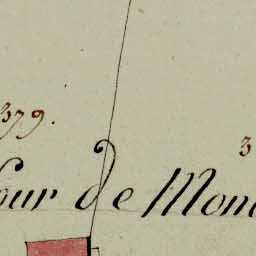 379.
3
our de Mon